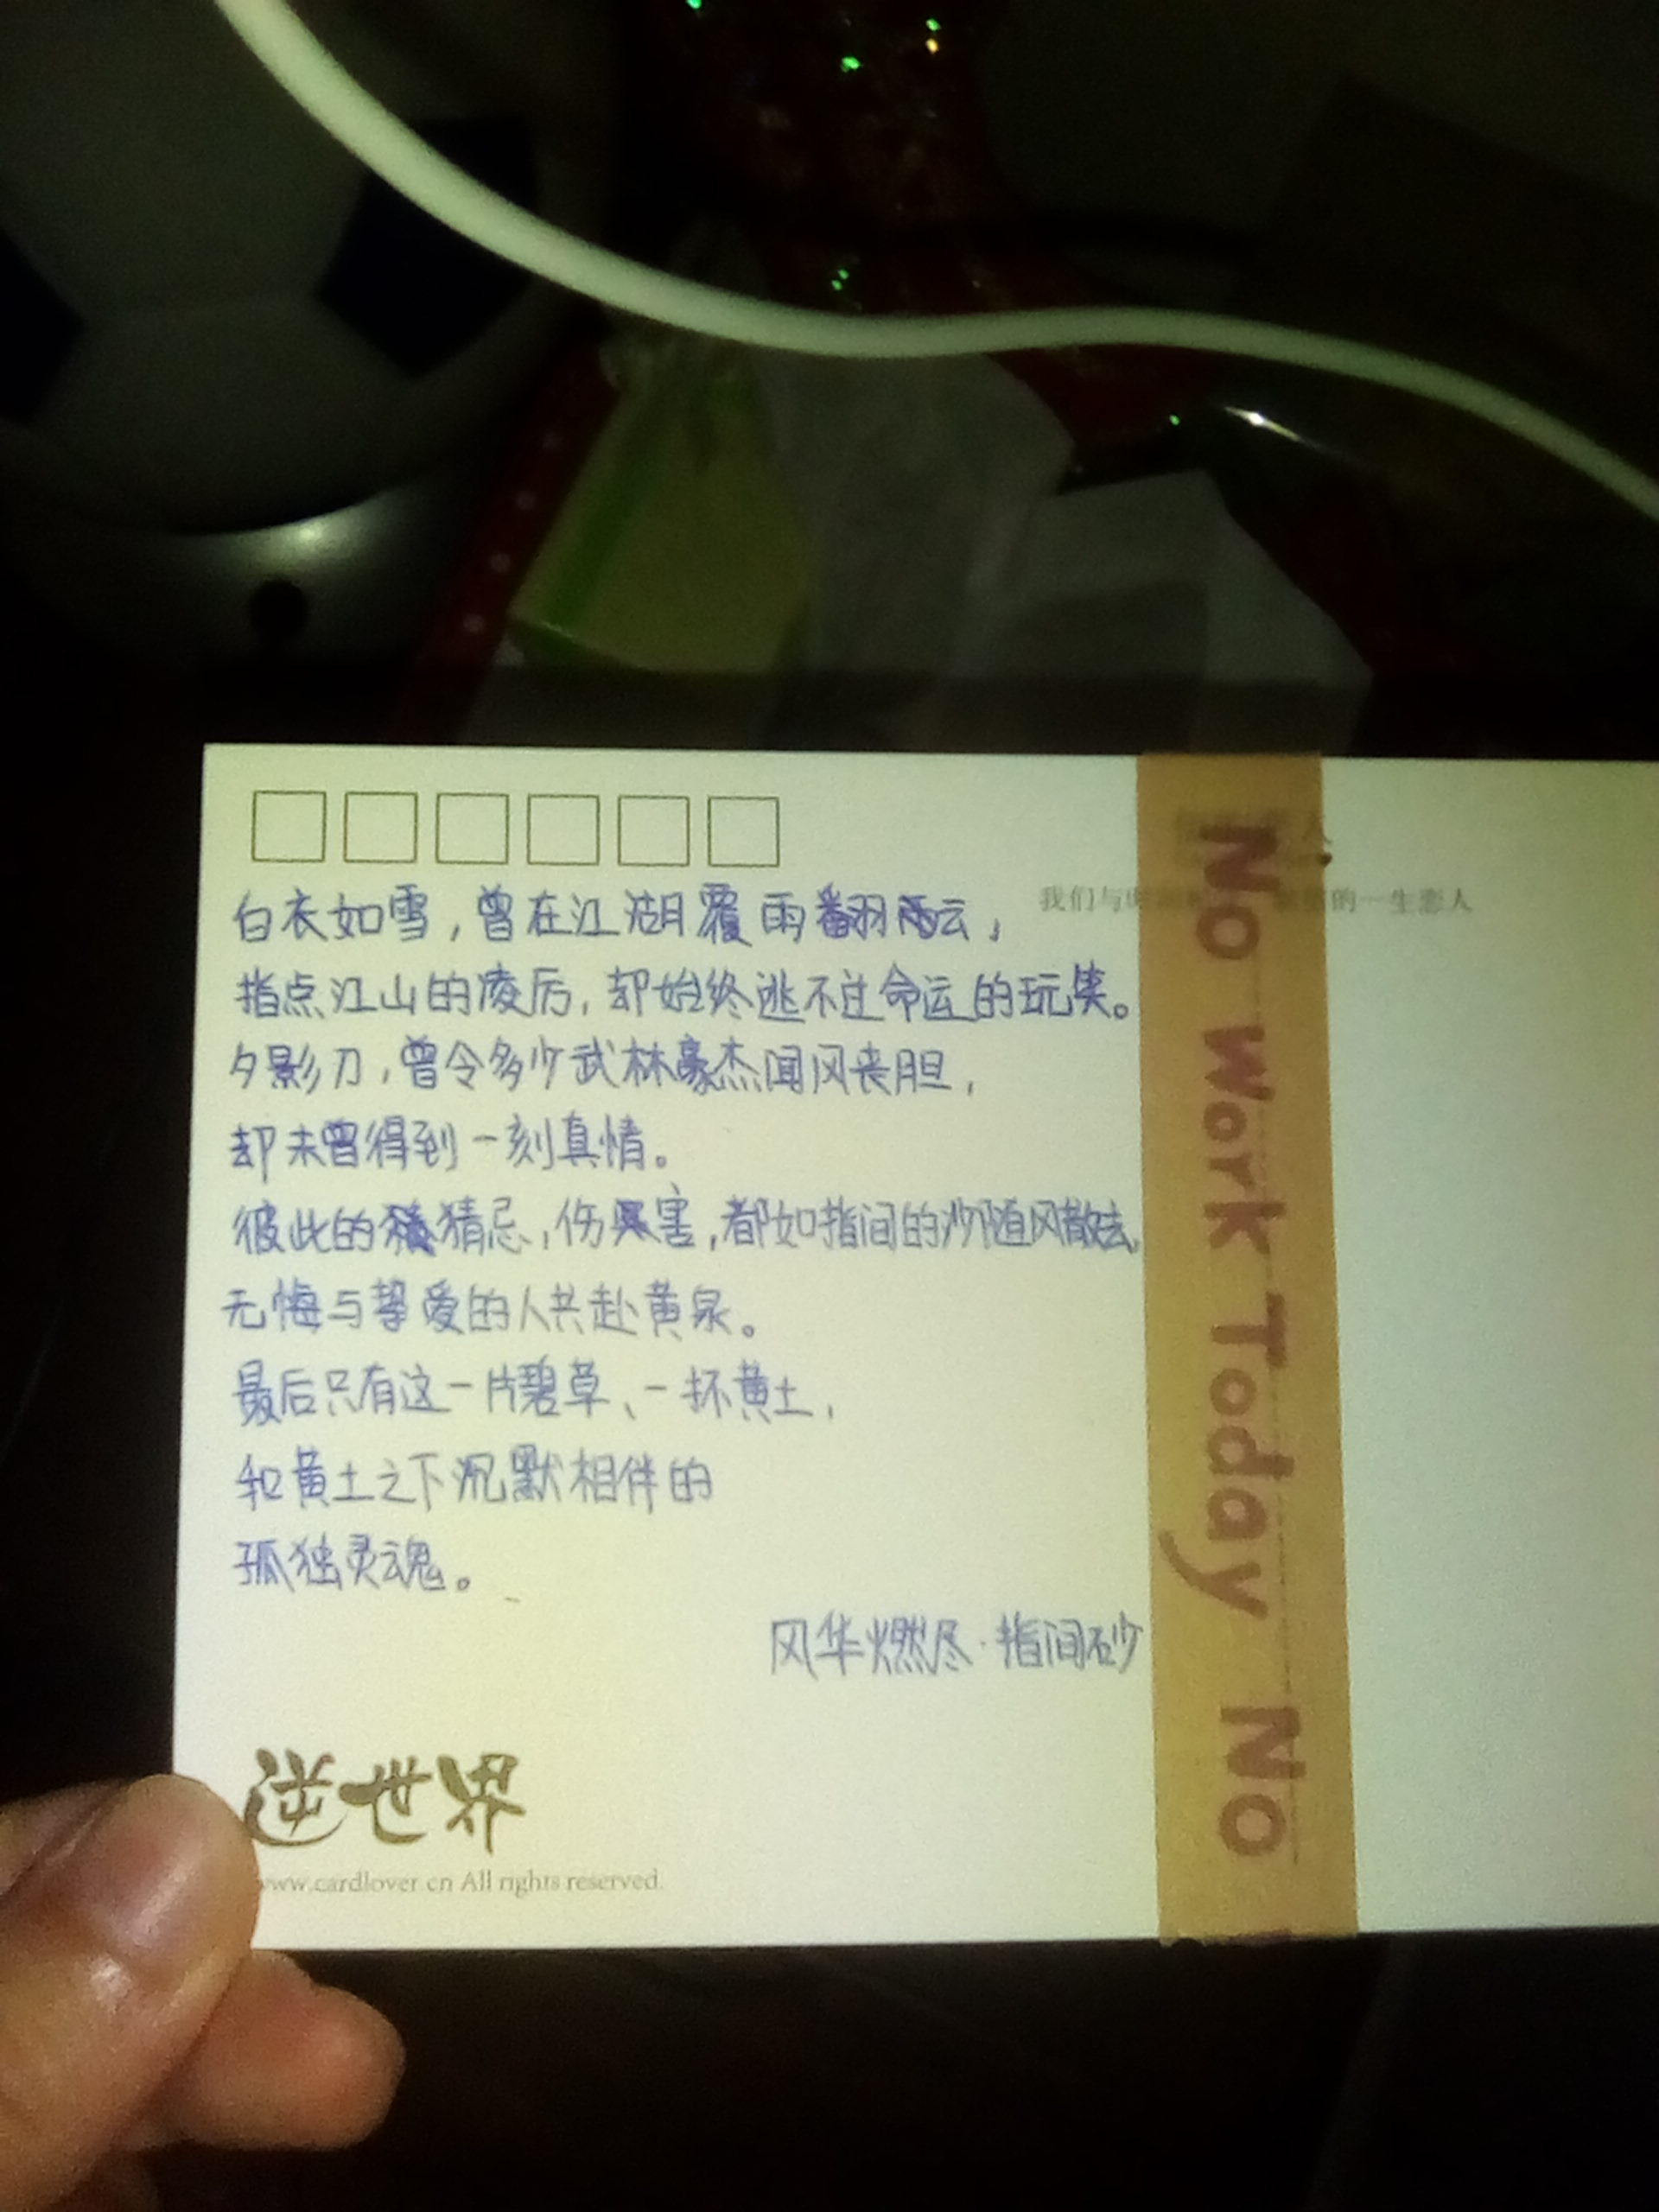 白衣如雪，曾在江湖覆雨翻云，
指点江山的凌厉，却始终逃不过命运的玩笑。
夕影刀，曾令多少武林豪杰闻风丧胆，
却未曾得到一刻真情。
彼此的猜忌，伤害，都如指间的沙随风散去，
无悔与挚爱的人共赴黄泉。
最后只有这一片碧草、一抔黄土，
和黄土之下沉默相伴的
孤独灵魂。
风华燃尽·指间砂
逆世界
www.cardlover.cn All rights reserved.
我们与 的一生恋人
No Work Today No